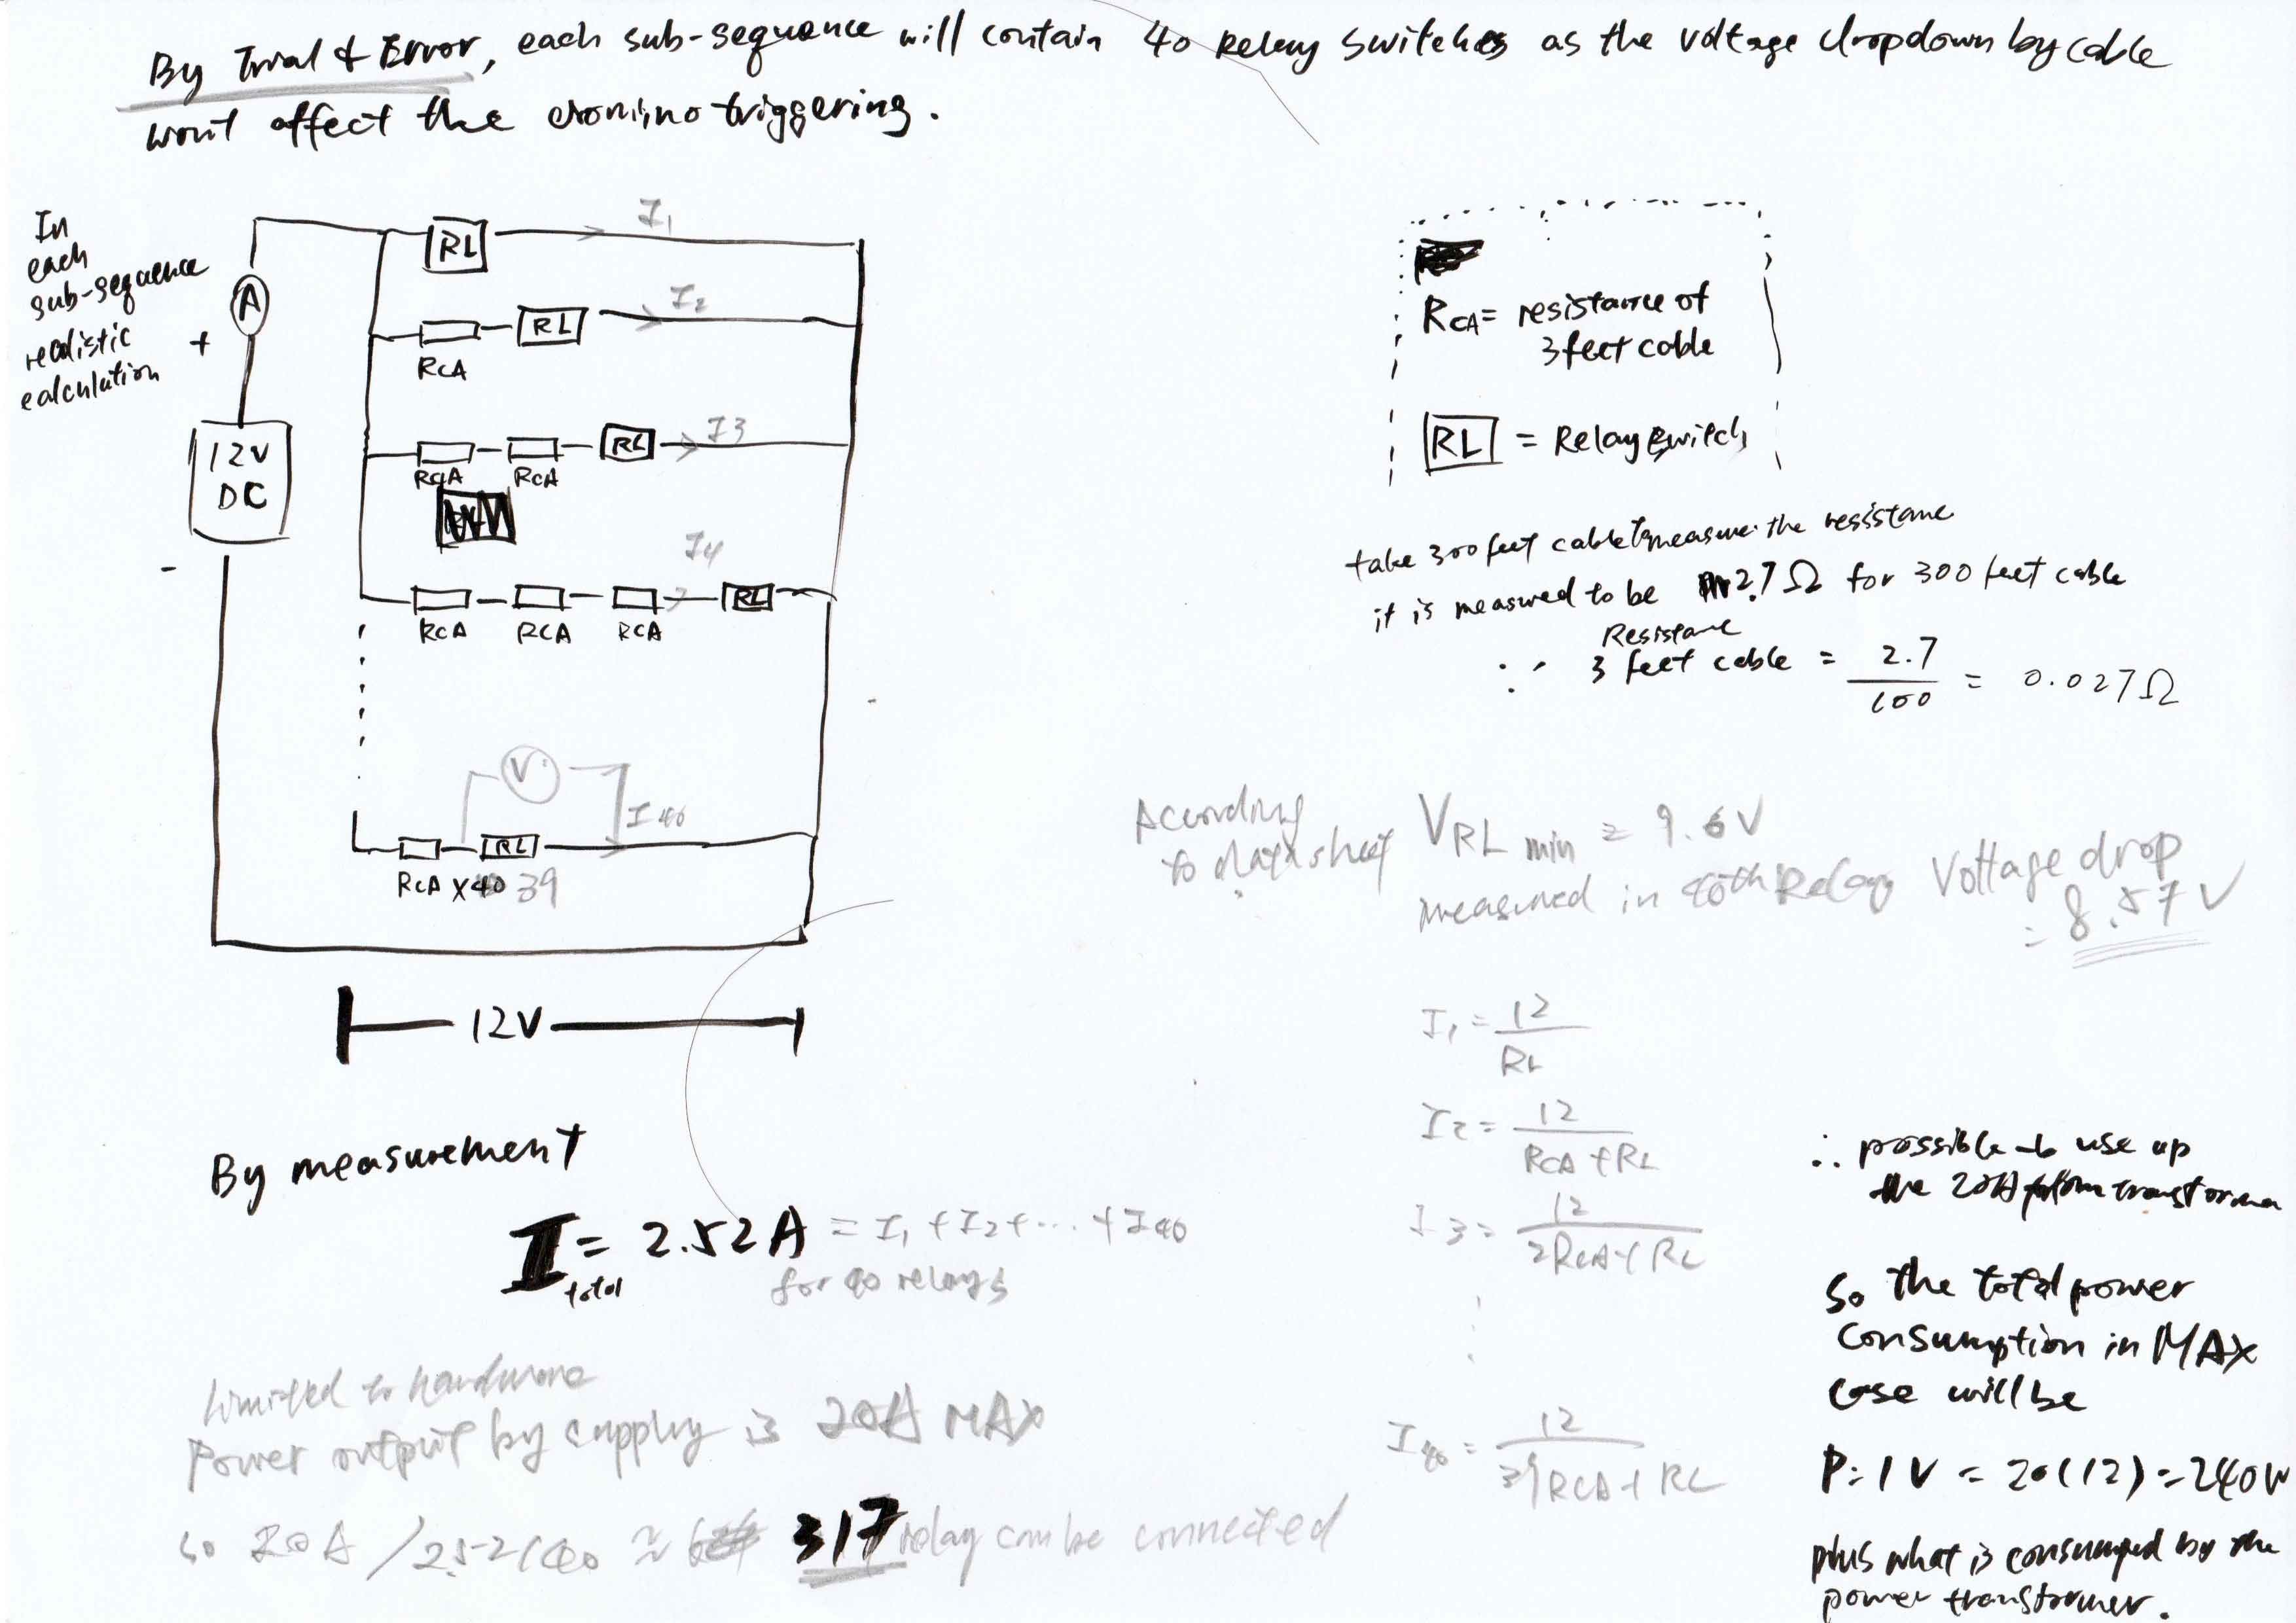 By Trial & Error, each sub-sequence will contain 40 Relay switches as the voltage dropdown by cable
wont affect the domino triggering.
In
each
sub-sequence
realistic
calculation
A
+
12V
DC
-
RL
I1
RCA
RL
I2
RCA
RCA
RL
I3
RCA
RCA
RCA
I4
RL
V
I40
RCA x 39
RL
12V
RCA = resistance of
3 feet cable
RL = Relay switch
take 300 feet cable to measure the resistance
it is measured to be 2.7Ω for 300 feet cable
Resistance
∵ 3 feet cable = 2.7 / 100 = 0.027Ω
According
to datasheet
VRL min = 9.6V
measured in 40th Relay Voltage drop
= 8.57V
I1 = 12 / RL
I2 = 12 / RCA + RL
I3 = 12 / 2RCA + RL
I40 = 12 / 39RCA + RL
By measurement
I total = 2.52A = I1 + I2 + ... + I40
for 40 relays
Limited to hardware
Power output by supply is 20A MAX
so 20A / 2.52 (40 ≈ 317 relay can be connected
∴ possible to use up
the 20A transformer
So the total power
consumption in MAX
case will be
P = IV = 20(12) = 240W
plus what is consumped by the
power transformer.